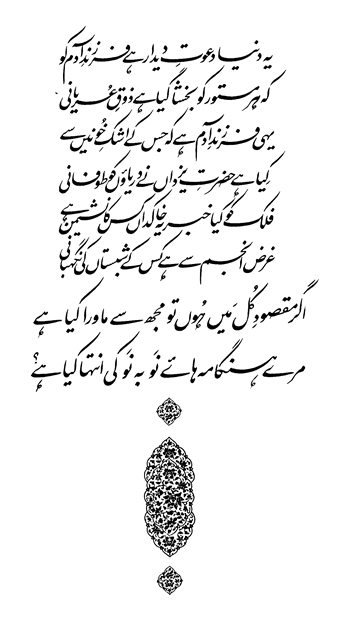 یہ دنیا دعوتِ دیدار ہے فرزندِ آدم کو
کہ ہر مستور کو بخشا گیا ہے ذوقِ عریانی
یہی فرزندِ آدم ہے کہ جس کے اشکِ خونیں سے
کیا ہے حضرتِ یزداں نے دریاؤں کو طوفانی
فلک کو کیا خبر یہ خاکداں کس کا نشیمن ہے
غرض انجم سے ہے کس کے شبستاں کی نگہبانی
اگر مقصودِ کُل مَیں ہُوں تو مجھ سے ماورا کیا ہے
مرے ہنگامہ ہائے نَو بہ نَو کی انتہا کیا ہے؟